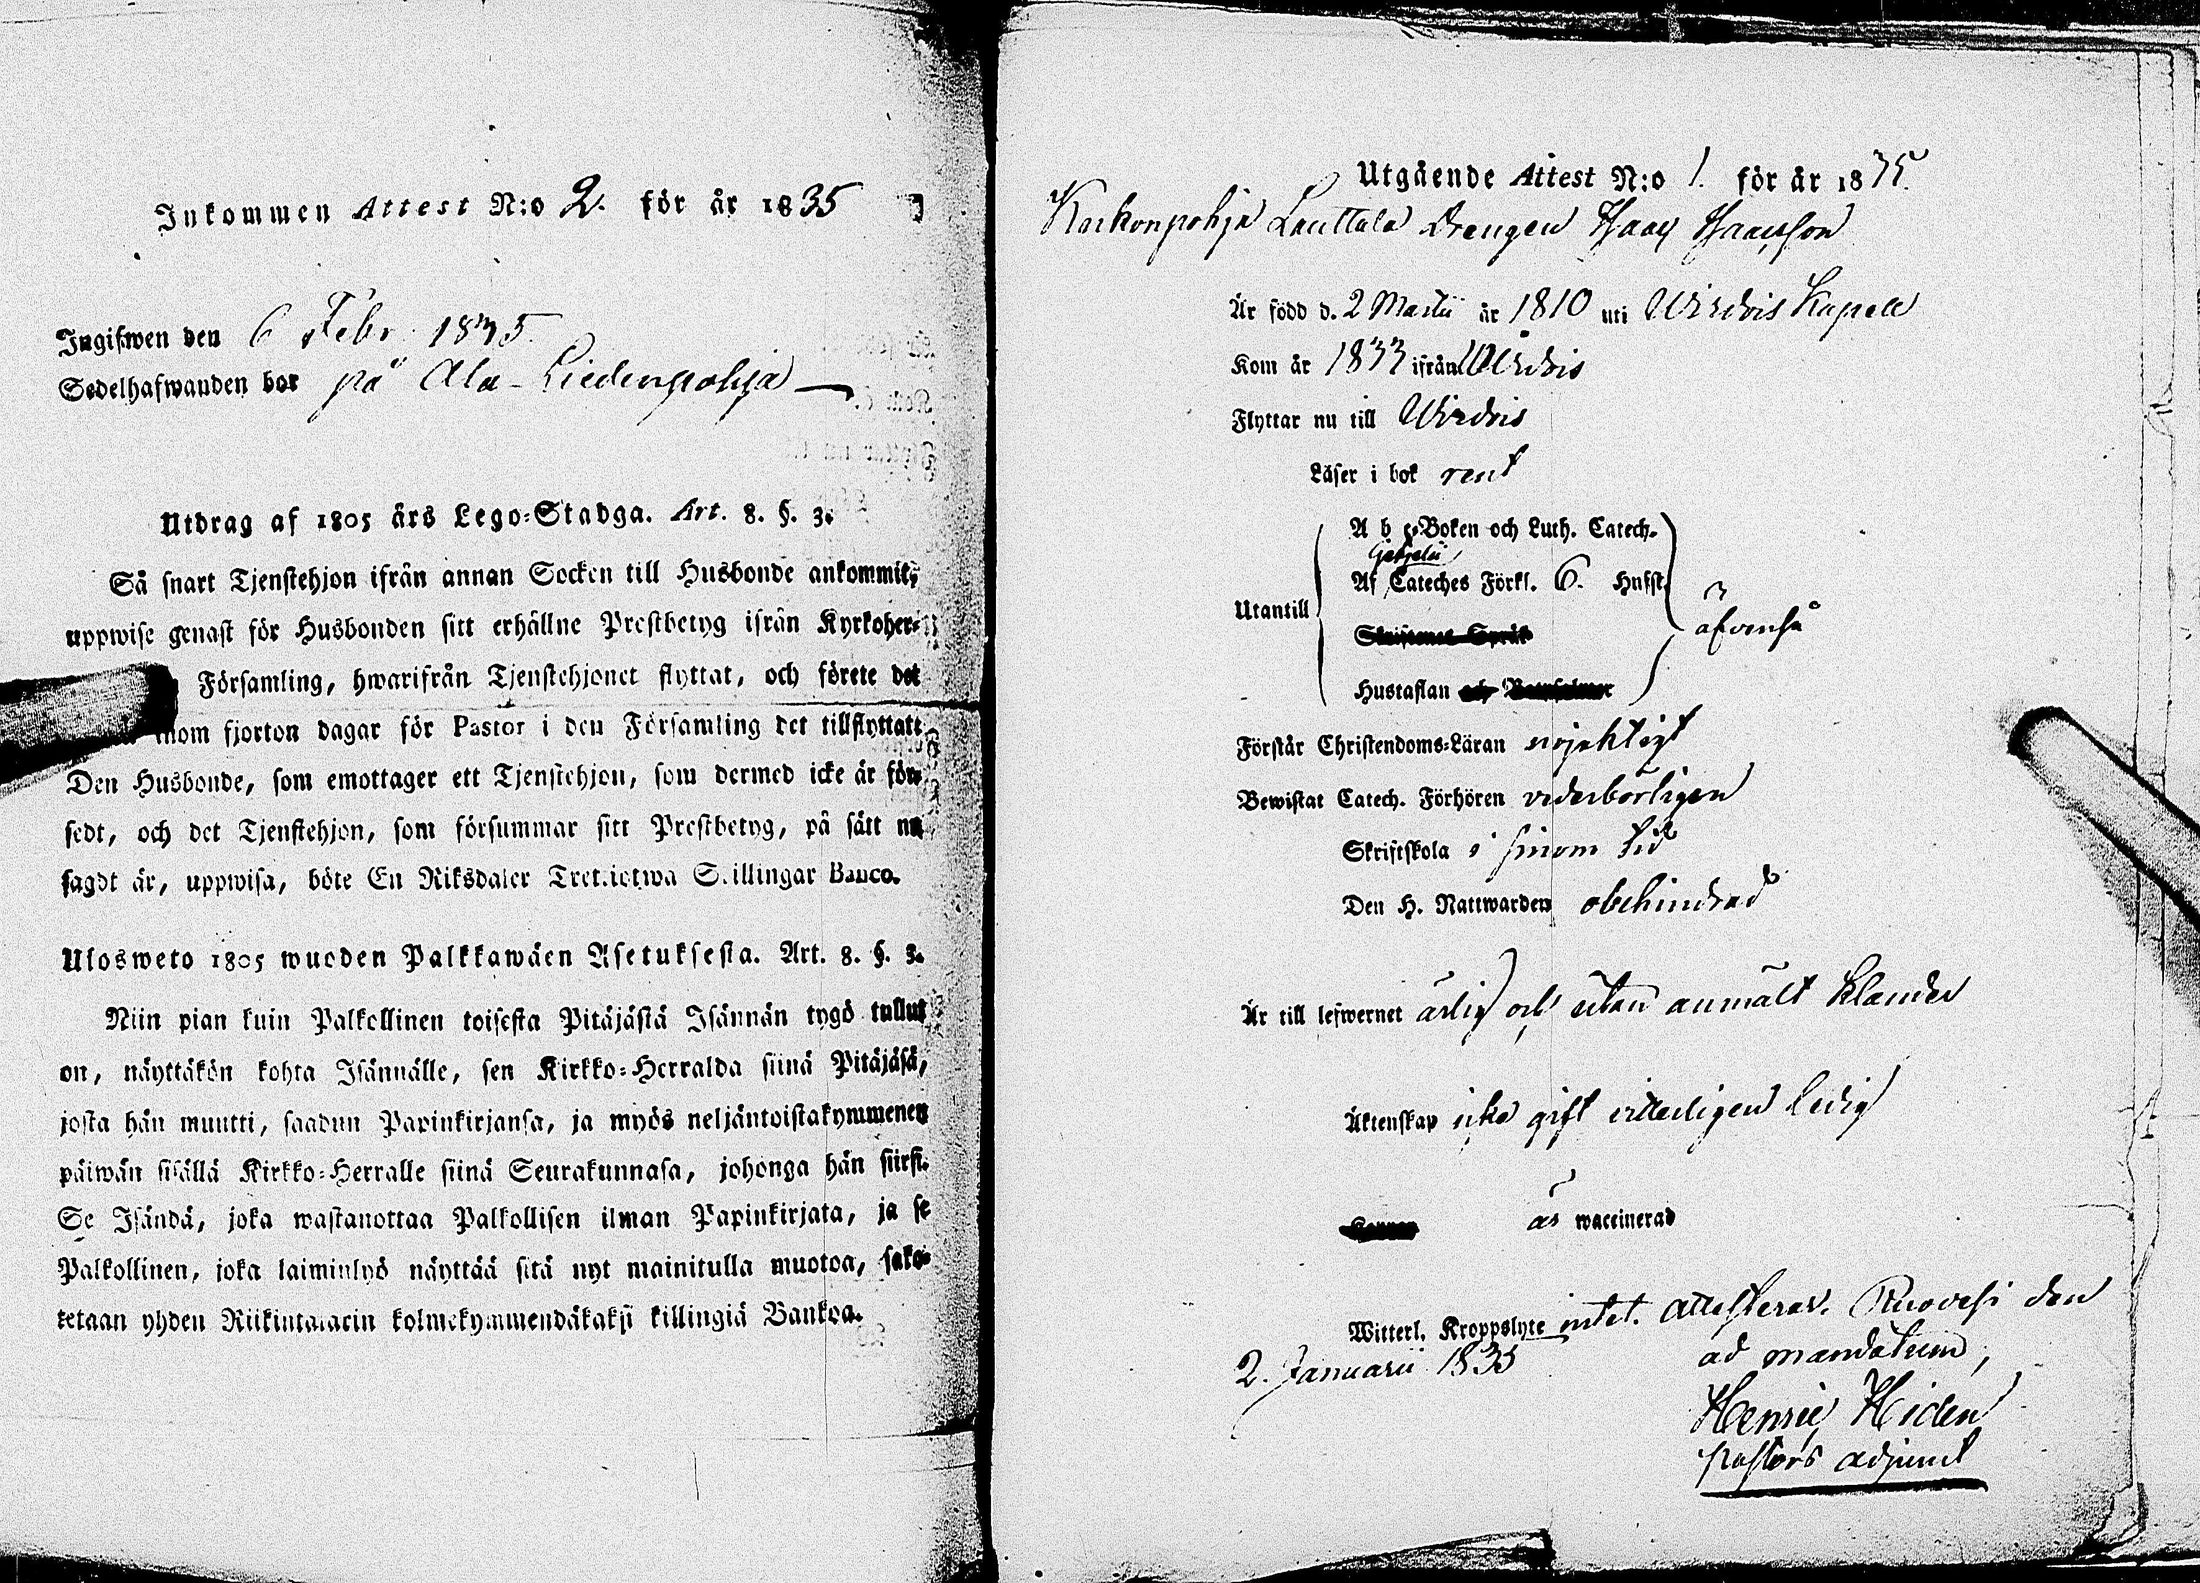 Inkommen Attest N:o 2. för år 1835
Ingifwen den 6 Febr. 1835.
Sedelhafwanden bor på Ala-Liedenpohja
Utdrag af 1805 års Lego-Stadga. Art. 8. §. 3.
Så snart Tjenstehjon ifrån annan Socken till Husbonde ankommit,
uppwise genast för Husbonden sitt erhållne Prestbetyg ifrån Kyrkoher-
Församling, hwarifrån Tjenstehjonet flyttat, och förete det
inom fjorton dagar för Pastor i den Församling det tillflyttatt
Den Husbonde, som emottager ett Tjenstehjon, som dermed icke är för-
sedt, och det Tjenstehjon, som försummar sitt Prestbetyg, på sätt nu
sagdt är, uppwisa, böte En Riksdaler Trettiotwa Skillingar Banco.
Ulosweto 1805 wuoden Palkkawäen Asetuksesta. Art. 8. §. 3.
Niin pian kuin Palkollinen toisesta Pitäjästä Isännän tygö tullut
on, näyttäkön kohta Isännälle, sen Kirkko-Herralda siinä Pitäjäsä,
josta hän muutti, saadun Papinkirjansa, ja myös neljäntoistakymmenen
päiwän sisällä Kirkko-Herralle siinä Seurakunnasa, johonga hän siirsi.
Se Isändä, joka wastanottaa Palkollisen ilman Papinkirjata, ja se
Palkollinen, joka laiminlyö näyttää sitä nyt mainitulla muotoa, sako-
tetaan yhden Riikintalarin kolmekymmendäkaksi killingiä Bankoa.
Utgående Attest N:o 1. för år 1835.
Kaikonpohja Lauttala Drengen Isaac Isaacsson
Är född d. 2 Martii år 1810 uti Wirdois Kapell
Kom år 1833 ifrån Wirdois
Flyttar nu till Wirdois
Läser i bok rent
A b c-Boken och Luth. Catech.
Af Cateches Förkl. 6. Hufst.
Utantill äfvenså
Skriftenes Språk
Hustaflan och
Förstår Christendoms-Läran nöjaktigt
Bewistat Catech. Förhören vederbörligen
Skriftskola i sinom tid
Den H. Nattwarden obehindrad
Är till lefwernet ärlig och utan anmält klander
Äktenskap icke gift vitterligen ledig
är waccinerad
Witterl. Kroppslyte intet. Attesterar. Ruovesi den
2. Januarii 1835 ad mandatum,
Henric Hiden
pastors adjunct